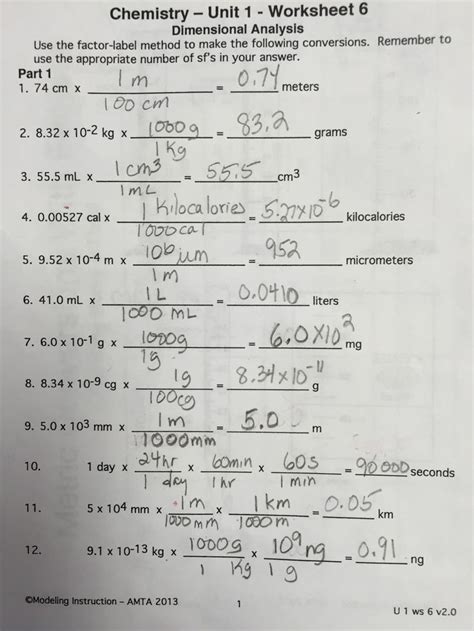 Chemistry – Unit 1 - Worksheet 6
Dimensional Analysis
Use the factor-label method to make the following conversions. Remember to
use the appropriate number of sf's in your answer.
Part 1
1. 74 cm x 1 m / 100 cm = 0.74 meters
2. 8.32 x 10-2 kg x 1000g / 1 Kg = 83.2 grams
3. 55.5 mL x 1 cm3 / 1 mL = 55.5 cm3
4. 0.00527 cal x 1 Kilocalories / 1000cal = 5.27x10-6 kilocalories
5. 9.52 x 10-4 m x 106 µm / 1 m = 952 micrometers
6. 41.0 mL x 1L / 1000 mL = 0.0410 liters
7. 6.0 x 10-1 g x 1000g / 1g = 6.0 x102 mg
8. 8.34 x 10-9 cg x 1g / 100cg = 8.34x10-11 g
9. 5.0 x 103 mm x 1m / 1000mm = 5.0 m
10. 1 day x 24hr / 1 day x 60min / 1 hr x 60s / 1 min = 90000 seconds
11. 5 x 104 mm x 1m / 1000 mm x 1 km / 1000m = 0.05 km
12. 9.1 x 10-13 kg x 1000g / 1 Kg x 109 ng / 1 g = 0.91 ng
©Modeling Instruction – AMTA 2013 1 U 1 ws 6 v2.0